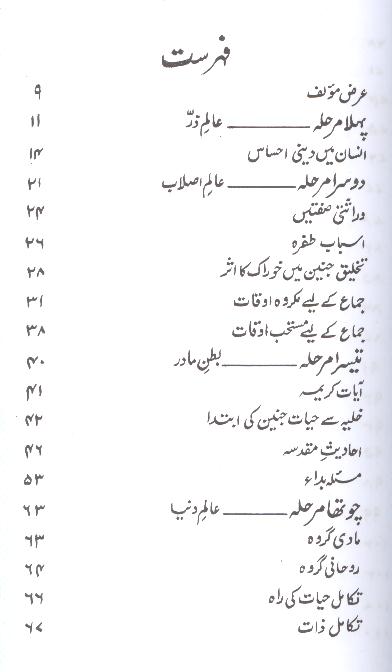 فہرست
عرض مؤلف ۹
پہلا مرحلہ ــــــــــ عالمِ ذرّ ۱۱
انسان میں دینی احساس ۱۴
دوسرا مرحلہ ــــــــــ عالمِ اصلاب ۲۱
وراثتی صفتیں ۲۴
اسباب طفرہ ۲۶
تخلیق جنین میں خوراک کا اثر ۲۸
جماع کے لیے مکروہ اوقات ۳۱
جماع کے لیے مستحب اوقات ۳۸
تیسرا مرحلہ ــــــــــ بطنِ مادر ۴۰
آیات کریمہ ۴۱
خلیہ سے حیات جنین کی ابتدا ۴۲
احادیثِ مقدسہ ۴۶
مسئلہ بداء ۵۳
چوتھا مرحلہ ــــــــــ عالمِ دنیا ۶۳
مادی گروہ ۶۳
روحانی گروہ ۶۴
تکامل حیات کی راہ ۶۶
تکامل ذات ۶۷